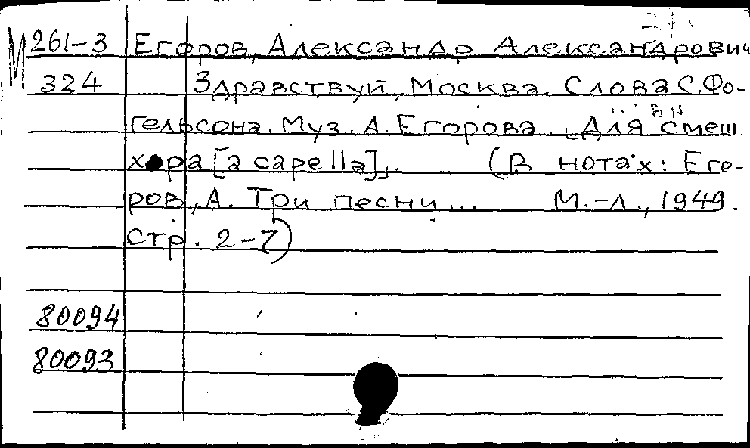 М 261-3 Егоров, Александр Александрович
324 Здравствуй, Москва. Слова С. Фо-
гельсона. Муз. А. Егорова. Для смеш
хора [a capella]. (В нотах: Его-
ров, А. Три песни... М.-Л., 1949.
Стр. 2-7)
80094
80093